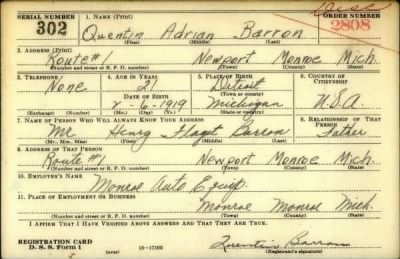 SERIAL NUMBER
1. NAME (Print)
ORDER NUMBER
302
Quentin Adrian Barron
2808
(First) (Middle) (Last)
2. ADDRESS (Print)
Route #1 Newport Monroe Mich.
(Number and street or R. F. D. number) (Town) (County) (State)
3. TELEPHONE
4. AGE IN YEARS
5. PLACE OF BIRTH
6. COUNTRY OF CITIZENSHIP
None
21
Detroit
DATE OF BIRTH
(Town or county)
6-1919
Michigan
U.S.A
(Exchange) (No.) (Mo.) (Day) (Yr.) (State or country)
7. NAME OF PERSON WHO WILL ALWAYS KNOW YOUR ADDRESS
8. RELATIONSHIP OF THAT PERSON
Mr Henry Barron Father
(Mr., Mrs., Miss) (First) (Middle) (Last)
9. ADDRESS OF THAT PERSON
Route #1 Newport Monroe Mich.
(Number and street or R. F. D. number) (Town) (County) (State)
10. EMPLOYER'S NAME
Monroe Auto Equip.
11. PLACE OF EMPLOYMENT OR BUSINESS
Monroe Monroe Mich.
(Number and street or R. F. D. number) (Town) (County) (State)
I AFFIRM THAT I HAVE VERIFIED ABOVE ANSWERS AND THAT THEY ARE TRUE.
REGISTRATION CARD
D. S. S. Form 1
(over)
Quentin Barron
(Registrant's signature)